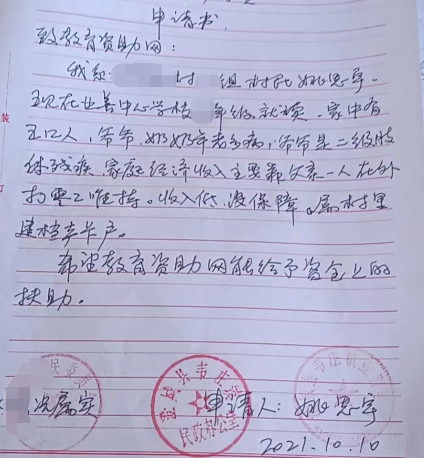 申请书
致教育资助网：
我红 村 组村民姚思宇
现在业善中心学校 年级就读。家中有
五口人，爷爷、奶奶年老多病，爷爷是二级肢
体残疾，家庭经济收入主要靠父亲一人在外
打零工维持。收入低，没保障。属村里
建档立卡户。
希望教育资助网能给予资金上的
扶助。
况属实
民政办公室
申请人：姚思宇
2021.10.10